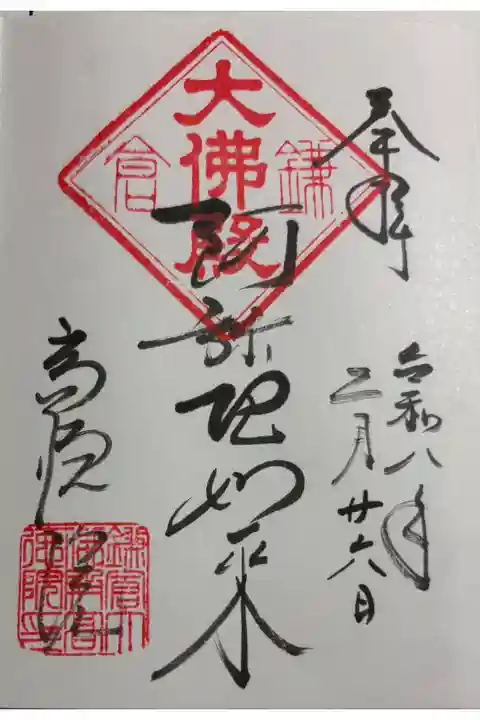 奉拝
令和八年
二月廿六日
鎌倉
大佛殿
阿弥陀如来
高徳院